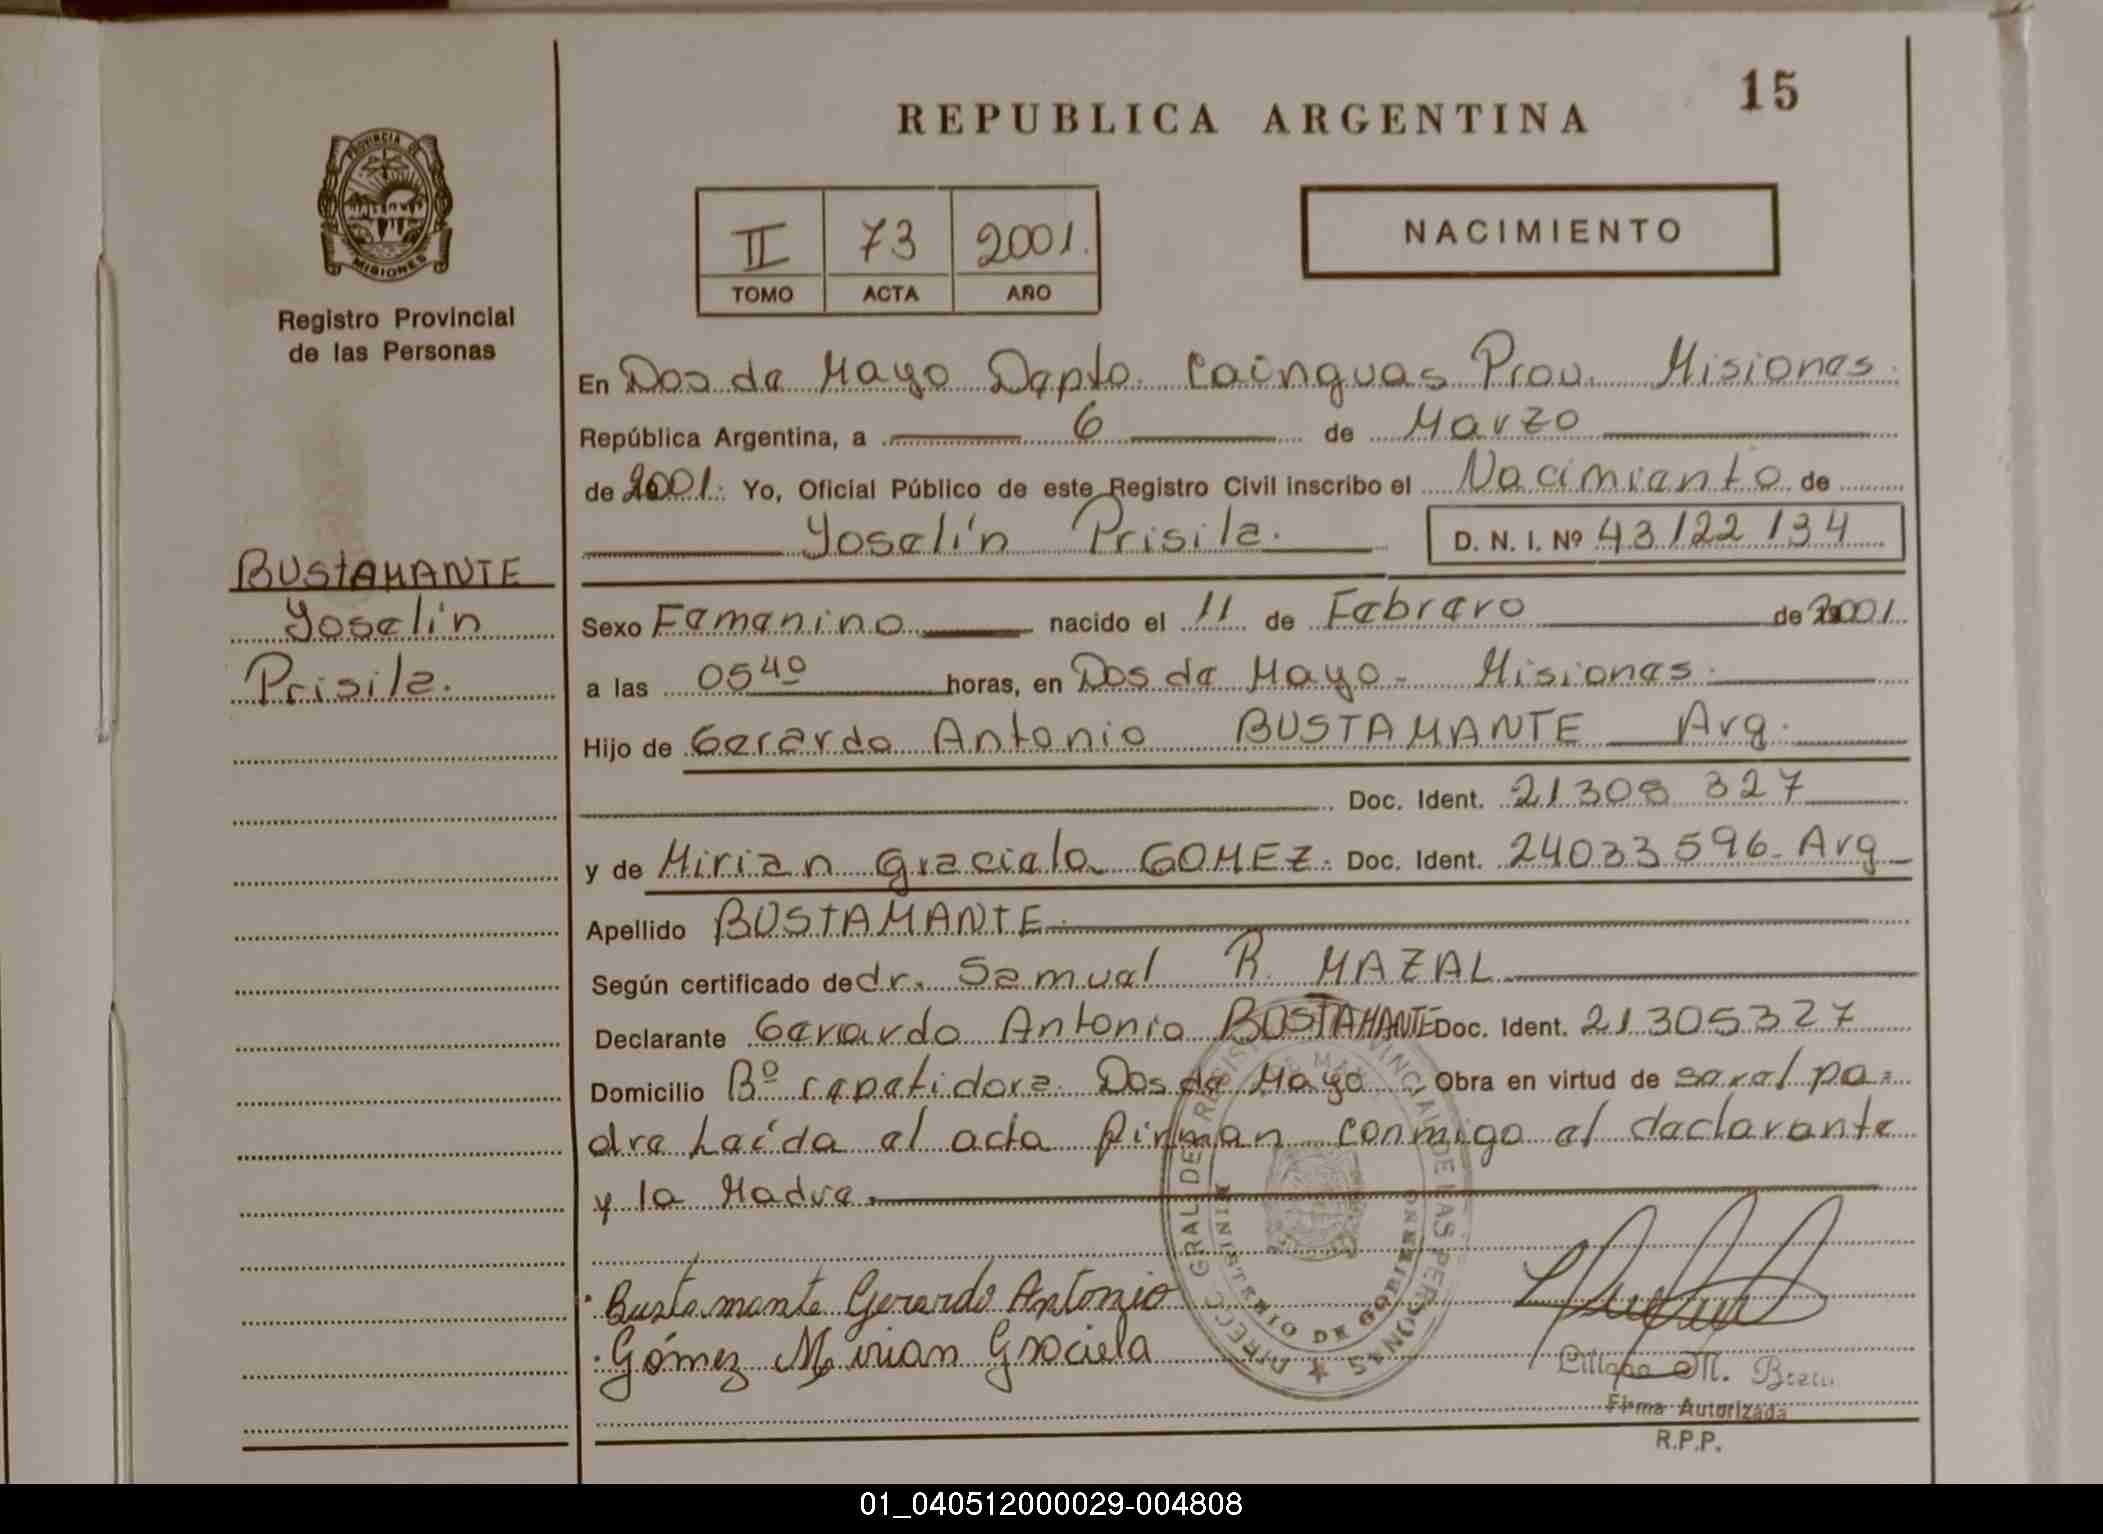 15
REPUBLICA ARGENTINA
PROVINCIA DE
MISIONES
Registro Provincial
de las Personas
II 73 2001.
TOMO ACTA AÑO
NACIMIENTO
En Dos de Mayo Depto. Cainguas Prov. Misiones.
República Argentina, a 6 de Marzo
de 2001. Yo, Oficial Público de este Registro Civil inscribo el Nacimiento de
Yoselín Prisila. D. N. I. Nº 43122134
BUSTAMANTE
Yoselín
Prisila.
Sexo Femenino nacido el 11 de Febrero de 2001.
a las 05 40 horas, en Dos de Mayo - Misiones.
Hijo de Gerardo Antonio BUSTAMANTE Arg.
Doc. Ident. 21308 327
y de Mirian Graciela GOMEZ. Doc. Ident. 24033596- Arg
Apellido BUSTAMANTE
Según certificado de dr. Samuel R. MAZAL
Declarante Gerardo Antonio BUSTAMANTE Doc. Ident. 21305327
Domicilio Bº repetidora Dos de Mayo Obra en virtud de ser el pa-
dre Leída el acta firman conmigo el declarante
y la Madre.
Bustamante Gerardo Antonio
Gómez Mirian Graciela
DIRECC. GRAL. DE REGISTRO PROVINCIAL DE LAS PERSONAS
MINISTERIO DE GOBIERNO
M.
Firma Autorizada
R.P.P.
01_040512000029-004808